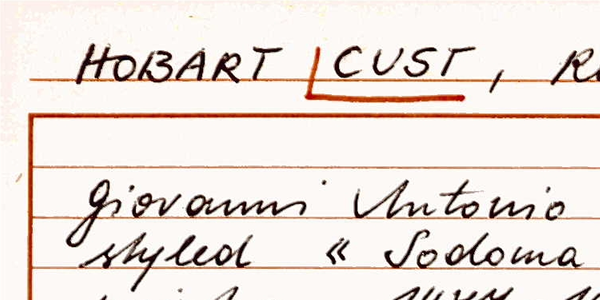 HOBART CUST,
Giovanni Antonio
styled « Sodoma